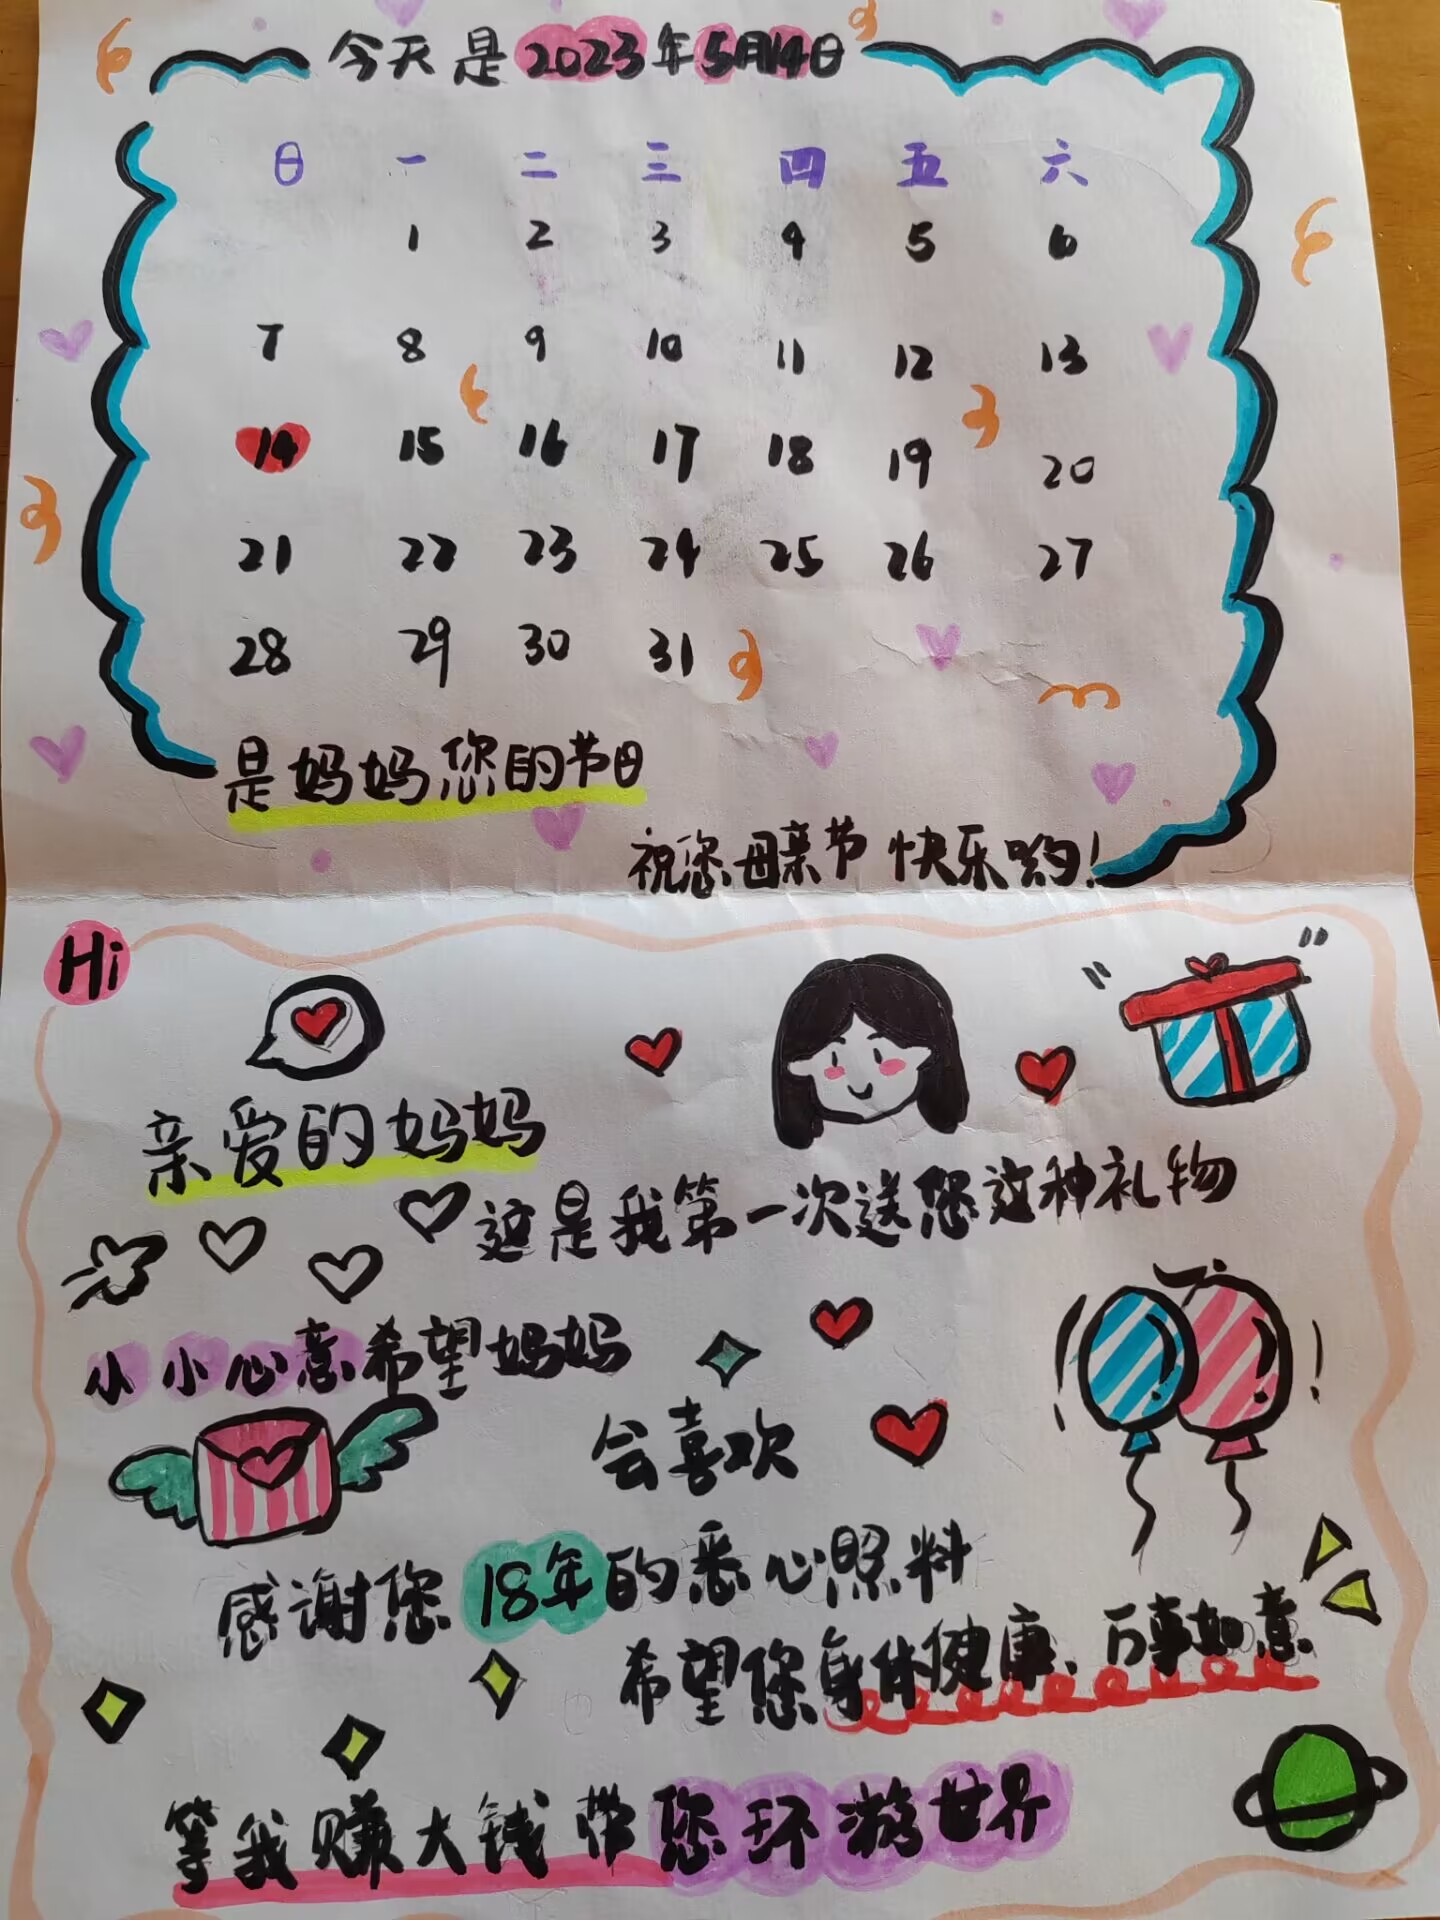 今天是2023年5月14日
日 一 二 三 四 五 六
1 2 3 4 5 6
7 8 9 10 11 12 13
14 15 16 17 18 19 20
21 22 23 24 25 26 27
28 29 30 31
是妈妈您的节日
祝您母亲节快乐哟!
Hi
亲爱的妈妈
这是我第一次送您这种礼物
小小心意希望妈妈
会喜欢
感谢您18年的悉心照料
希望您身体健康、万事如意.
等我赚大钱带您环游世界